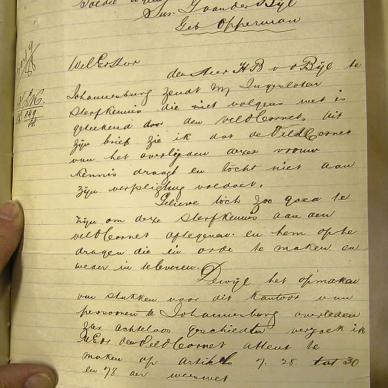 Sus. J van der Byl
Geb Opperman
WelEd Heer
den Heer H B v d Byl te
Johannesburg zendt mij Ingesloten
sterfkennis die niet volgens wet is
geteekend door den veldCornet, uit
zijn brief zie ik dat de VeldCornet
van het overlijden dezer vrouw
kennis draagt en tocht niet aan
zijn verpligting voldoet.
Gelieve toch zoo goed te
zijn om deze sterfkennis aan den
veldCornet aftegeven en hem opte
dragen die in orde te maken en
weder in televeren. Dewijl het opmaken
van stukken voor dit kantoor van
personen te Johannesburg overleden
zoo achteloos geschieden verzoek ik
den VeldCornet attent te
maken op artikels 7. 28 tot 30
en 78 der weeswet